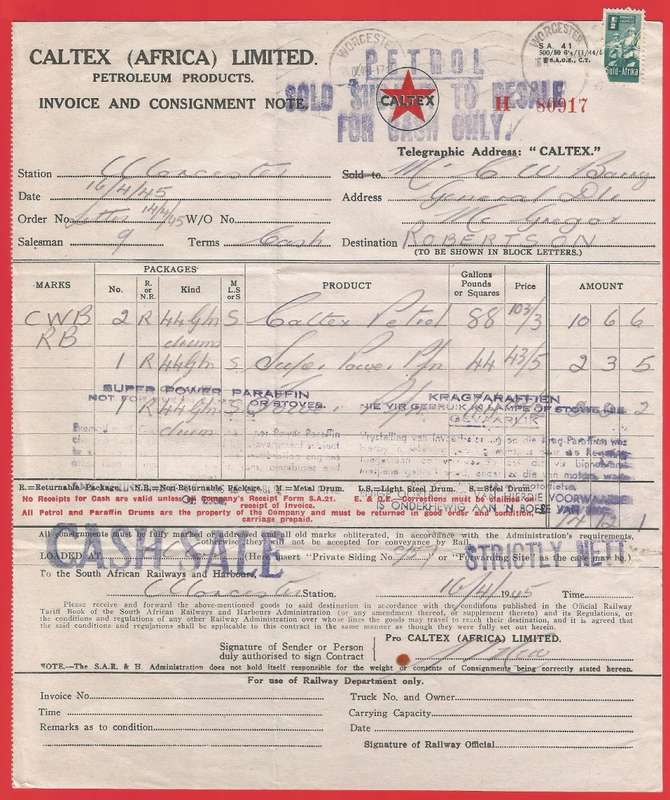 CALTEX (AFRICA) LIMITED.
PETROLEUM PRODUCTS.
INVOICE AND CONSIGNMENT NOTE
WORCESTER
WORCESTER
S.A. 41
PETROL
SOLD STRICTLY TO RESALE
FOR CASH ONLY.
CALTEX
H 80917
Suid-Afrika
Telegraphic Address: "CALTEX."
Station Worcester
Sold to Mr C W
Date 16/4/45
Address General
Order No. letter 14/4/45 W/O No.
McGregor
Salesman 9 Terms Cash
Destination ROBERTSON
(TO BE SHOWN IN BLOCK LETTERS.)
MARKS PACKAGES No. R. or N.R. Kind M L.S or S PRODUCT Gallons Pounds or Squares Price AMOUNT
CWB 2 R 44 Gln drums S Caltex Petrol 88 103/3 10 6 6
RB
1 R 44 Gln S. Super Power Pfn 44 43/5 2 3 5
SUPER POWER PARAFFIN KRAGPARAFFIEN
NOT FOR OR STOVES. NIE VIR GEBRUIK IN LAMPE OF STOWE
1 R 44 Gln drum S 2
R.=Returnable Package. N.R.=Non-Returnable Package. M.=Metal Drum. L.S.=Light Steel Drum. S.=Steel Drum.
No Receipts for Cash are valid unless on Company's Receipt Form S.A.21. E. & O.E.—Corrections must be claimed on receipt of Invoice.
All Petrol and Paraffin Drums are the property of the Company and must be returned in good order and condition, carriage prepaid.
IS ONDERHEWIG AAN 'N BOETE VAN
14 12 1
All consignments must be fully marked or addressed and all old marks obliterated, in accordance with the Administration's requirements, otherwise they will not be accepted for conveyance by Rail.
CASH SALE
STRICTLY NETT
LOADED AT (Here insert "Private Siding No." or "Forwarding Site" as the case may be.)
To the South African Railways and Harbours,
Worcester Station. 16/4/1945 Time
Please receive and forward the above-mentioned goods to said destination in accordance with the conditions published in the Official Railway
Tariff Book of the South African Railways and Harbours Administration (or any amendment thereof, or supplement thereto) and its Regulations, or
the conditions and regulations of any other Railway Administration over whose lines the goods may travel to reach their destination, and it is agreed that
the said conditions and regulations shall be applicable to this contract in the same manner as though they were fully set out herein.
Pro CALTEX (AFRICA) LIMITED.
Signature of Sender or Person
duly authorised to sign Contract
NOTE.—The S.A.R. & H Administration does not hold itself responsible for the weight or contents of Consignments being correctly stated herein.
For use of Railway Department only.
Invoice No. Truck No. and Owner
Time Carrying Capacity
Remarks as to condition Date
Signature of Railway Official